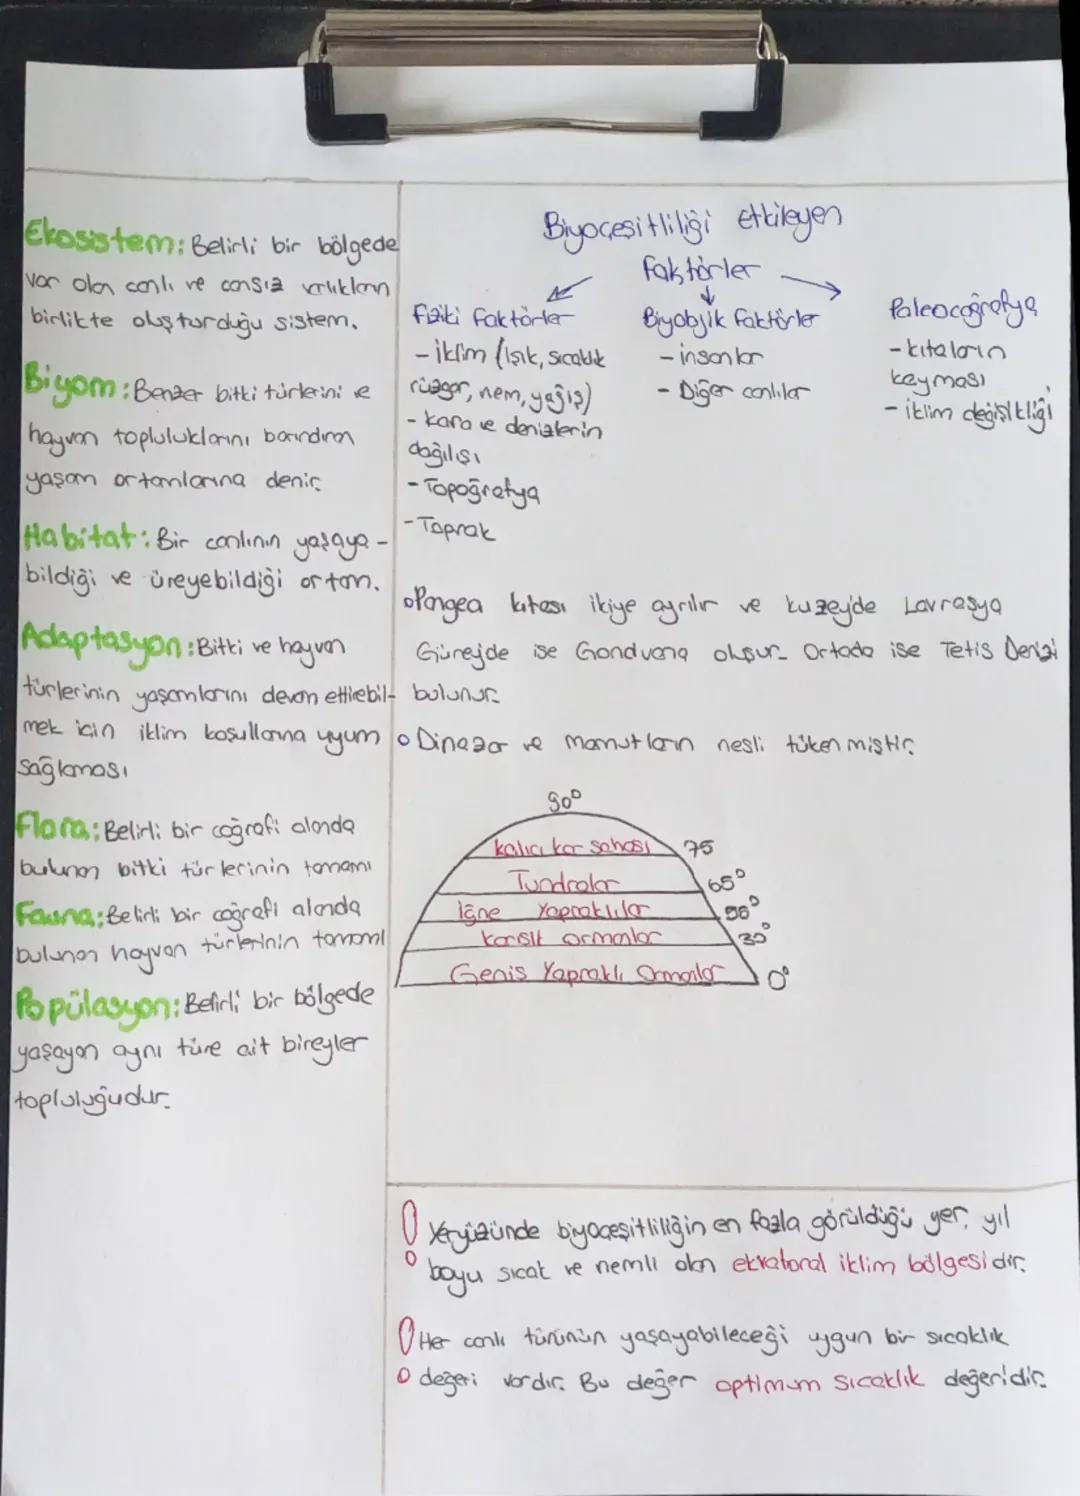 Ekosistem: Belirli bir bölgede
var olan canlı ve cansız varlıkların
birlikte oluşturduğu sistem.
Biyom: Benzer bitki türlerini ve
hayvan topluluklarını barındıran
yaşam ortamlarına denir.
Habitat: Bir canlının yaşaya-
bildiği ve üreyebildiği ortam.
Adaptasyon: Bitki ve hayvan
türlerinin yaşamlarını devam ettirebil-
mek için iklim koşullarına uyum
sağlaması
Flora: Belirli bir coğrafi alanda
bulunan bitki türlerinin tamamı
Fauna: Belirli bir coğrafi alanda
bulunan hayvan türlerinin tamamı
Popülasyon: Belirli bir bölgede
yaşayan aynı türe ait bireyler
topluluğudur.
Biyoçeşitliliği etkileyen
faktörler
Fiziki faktörler
- iklim (Işık, sıcaklık
rüzgar, nem, yağış)
- kara ve denizlerin
dağılışı
- Topoğrafya
- Toprak
Biyolojik faktörler
- insanlar
- Diğer canlılar
Paleocoğrafya
- kıtaların
kayması
- iklim değişikliği
Pangea kıtası ikiye ayrılır ve kuzeyde Lavrasya
Güneyde ise Gondvana oluşur. Ortada ise Tetis Denizi
bulunur.
Dinazor ve mamutların nesli tükenmiştir.
90°
kalıcı kar sahası 75
Tundralar 65°
İğne Yapraklılar
karışık ormanlar 30°
Geniş Yapraklı Ormanlar 0°
! Yeryüzünde biyoçeşitliliğin en fazla görüldüğü yer, yıl
boyu sıcak ve nemli olan ekvatoral iklim bölgesidir.
! Her canlı türünün yaşayabileceği uygun bir sıcaklık
değeri vardır. Bu değer optimum sıcaklık değeridir.